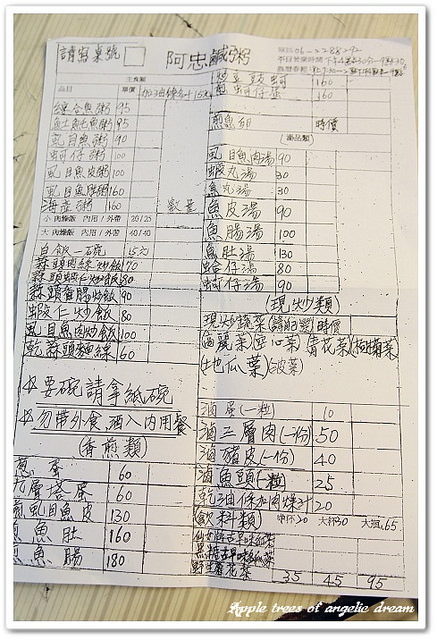 請寫桌號
阿忠鹹粥
主食類
品目 單價
綜合魚粥 95
魠魠魚粥 95
虱目魚粥 90
蚵仔粥 100
虱目魚皮粥 100
虱目魚肚粥 160
海產粥 160
數量
小 肉燥飯 內用/外帶 20/25
大 肉燥飯 內用/外帶 40/40
白飯一碗 15元
蒜頭肉絲炒飯 70
蒜頭蝦仁炒飯 80
蒜頭香腸炒飯 90
蝦仁炒飯 80
虱目魚肉炒飯 100
乾蒜頭麵線 60
☆要碗請拿紙碗
☆勿帶外食,酒入內用餐
(香煎類)
蔥蛋 60
九層塔蛋 60
煎虱目魚皮 130
魚肚 160
魚腸 180
160
160
煎魚卵 時價
(湯品類)
虱目魚肉湯 90
蝦丸湯 30
魚丸湯 30
魚皮湯 90
魚腸湯 100
魚肚湯 130
蛤仔湯 80
蚵仔湯 90
(現炒類)
現炒蔬菜(請勾選) 時價
(高麗菜)(空心菜)(青花菜)
(地瓜葉)(菠菜)
滷蛋(一粒) 10
滷三層肉(一份) 50
滷豬皮(一份) 40
滷魚頭(一粒) 25
乾油條加肉燥汁 20
(飲料類) 中杯20 大杯30 大瓶65
35 45 95
Apple trees of angelic dream